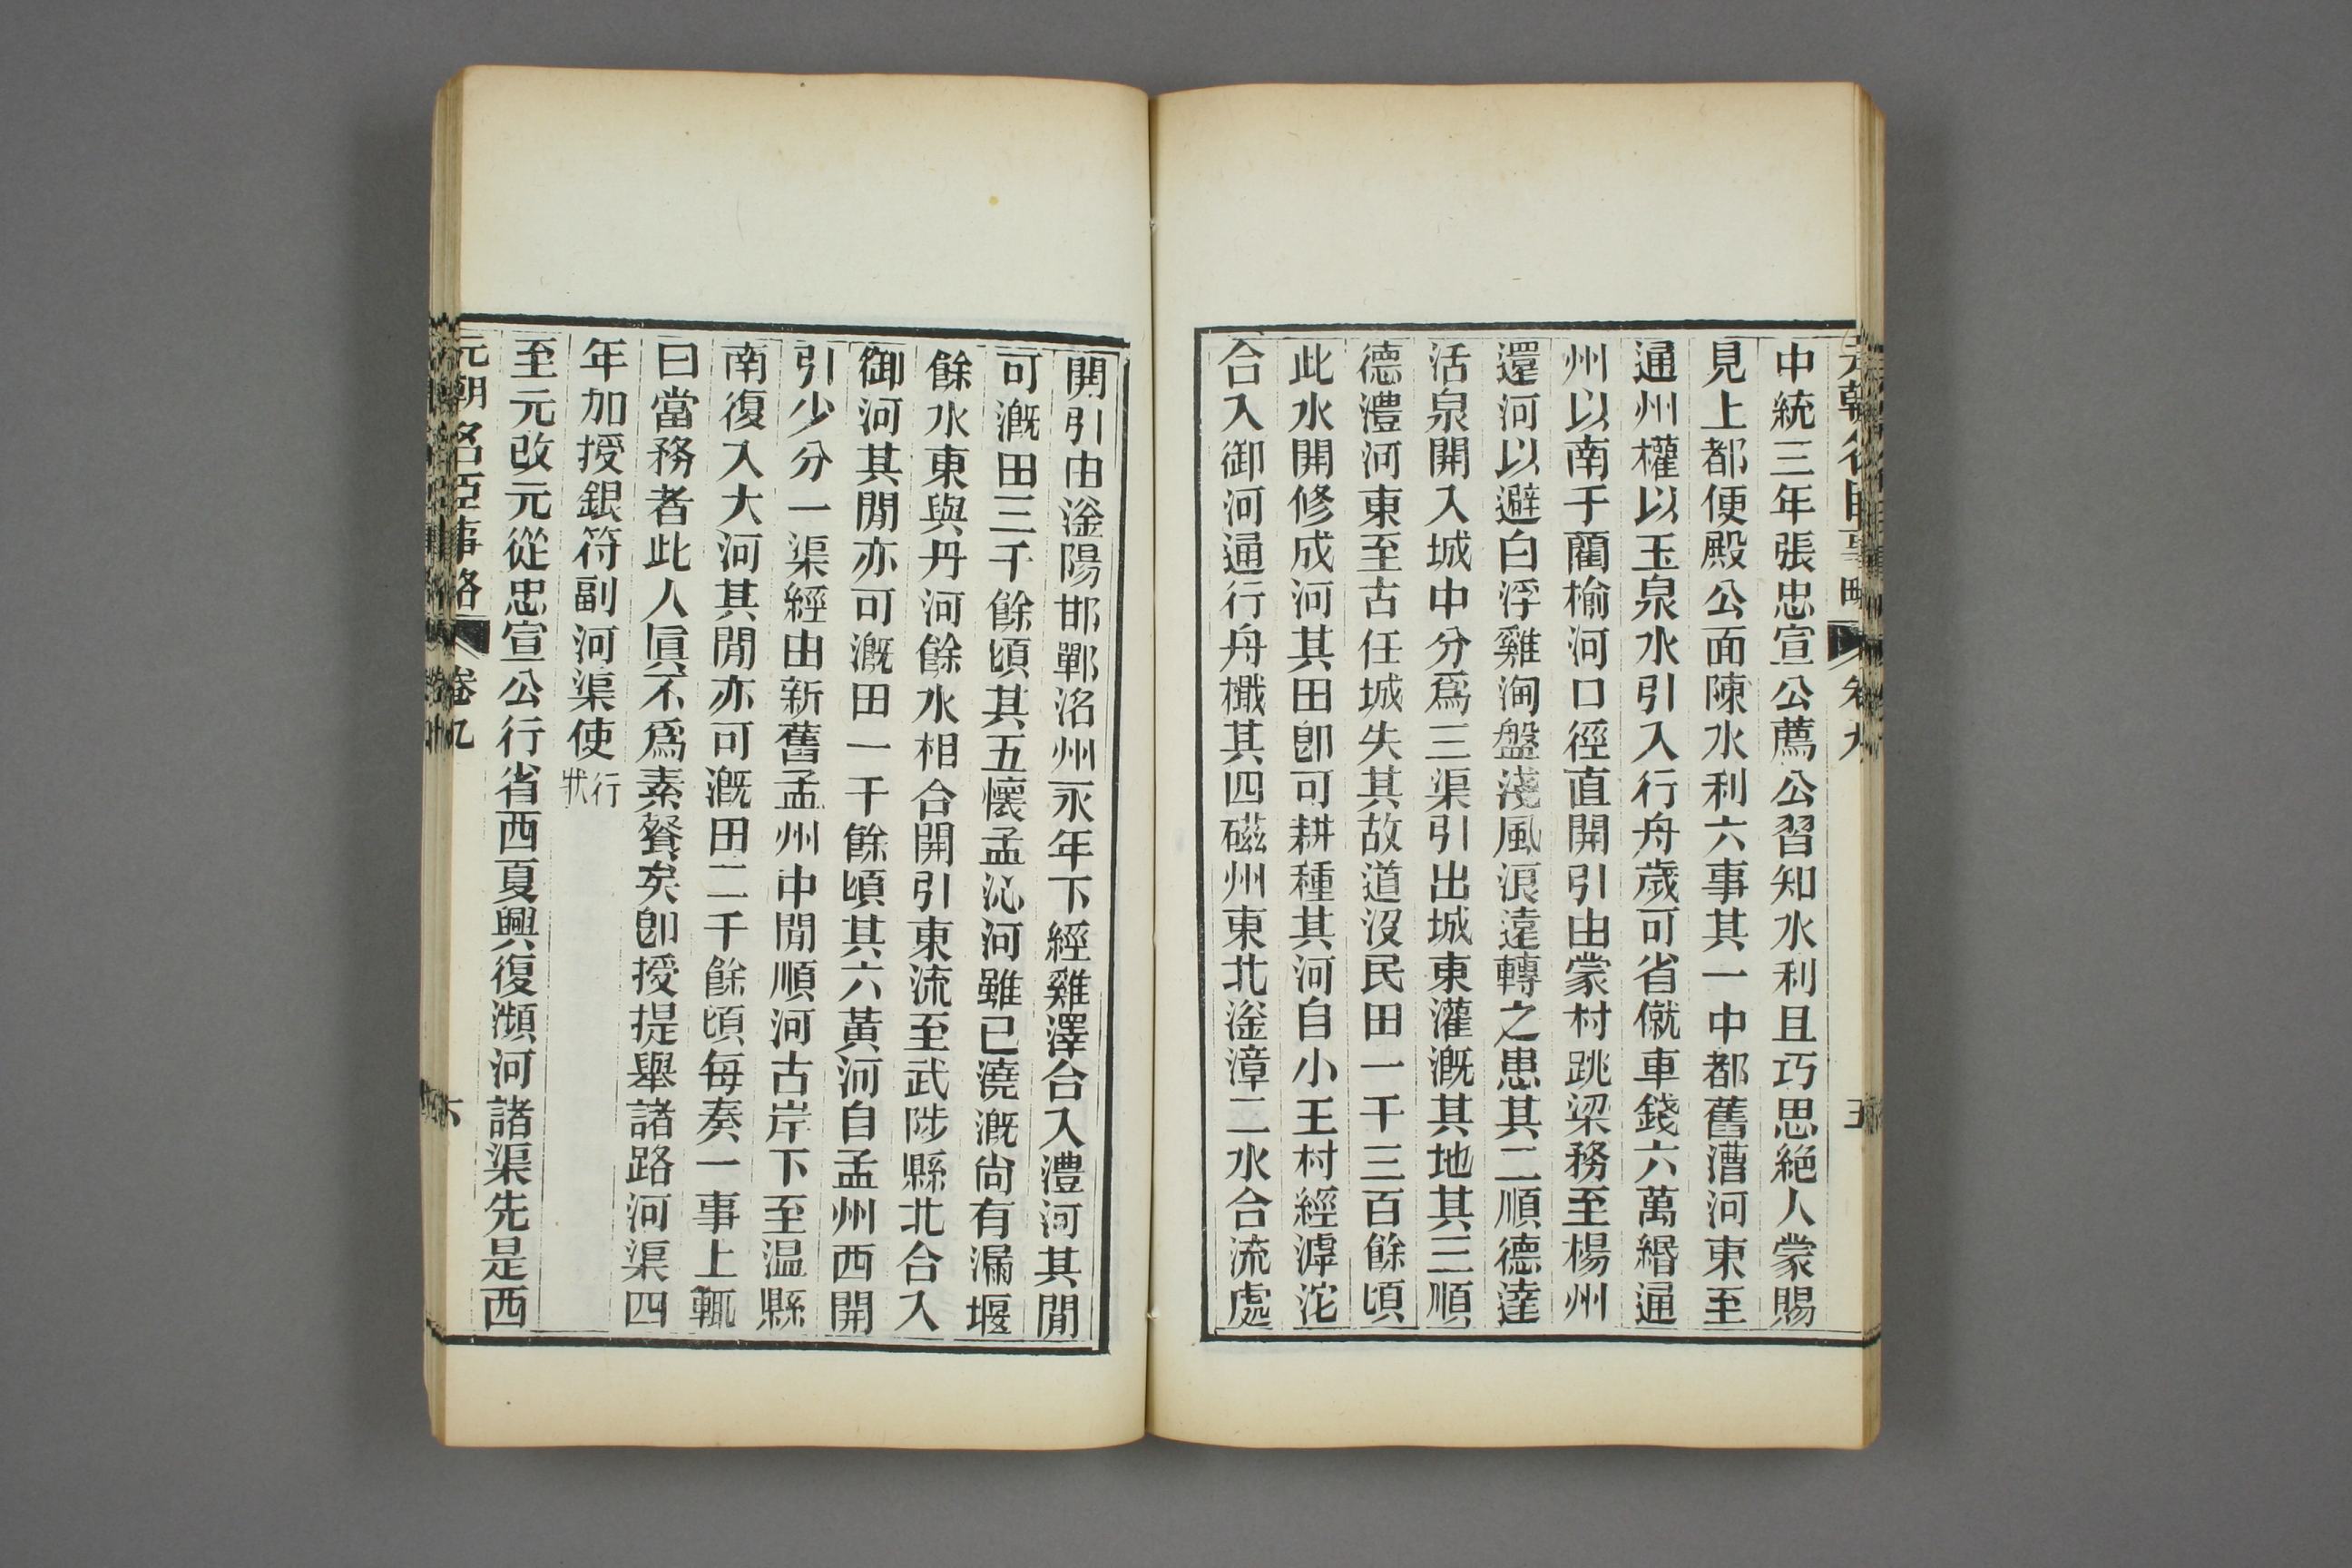 中統三年張忠宣公薦公習知水利且巧思絶人蒙賜
見上都便殿公面陳水利六事其一中都舊漕河東至
通州權以玉泉水引入行舟歲可省僦車錢六萬緡通
州以南于藺榆河口徑直開引由蒙村跳梁務至楊州
還河以避白浮雞洵盤淺風浪遠轉之患其二順德達
活泉開入城中分爲三渠引出城東灌溉其地其三順
德澧河東至古任城失其故道沒民田一千三百餘頃
此水開修成河其田卽可耕種其河自小王村經滹沱
合入御河通行舟檝其四磁州東北滏漳二水合流處
開引由滏陽邯鄲洺州永年下經雞澤合入澧河其閒
可溉田三千餘頃其五懷孟沁河雖已澆溉尙有漏堰
餘水東與丹河餘水相合開引東流至武陟縣北合入
御河其閒亦可溉田一千餘頃其六黃河自孟州西開
引少分一渠經由新舊孟州中閒順河古岸下至温縣
南復入大河其閒亦可溉田二千餘頃每奏一事上輒
曰當務者此人眞不爲素餐矣卽授提舉諸路河渠四
年加授銀符副河渠使行狀
至元改元從忠宣公行省西夏興復瀕河諸渠先是西
元朝名臣事略 卷九